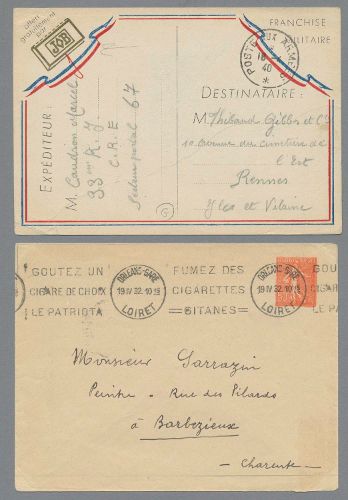 Offert
gratuitement
par
JOB
FRANCHISE
MILITAIRE
POSTE AUX ARMÉES
18
40
*
EXPÉDITEUR:
M. Caudron Marcel
33me R.J.
C.R.E
Secteur postal 67
DESTINATAIRE:
M. Thibaud Gibbs et Cie
10 Avenue du cimetière de
l'Est
Rennes
Iles et Vilaine
GOUTEZ UN
CIGARE DE CHOIX
LE PATRIOTA
ORLEANS-GARE
19 IV 32. 10 15
LOIRET
FUMEZ DES
CIGARETTES
GITANES
ORLEANS-GARE
19 IV 32. 10 15
LOIRET
GOU
CIGARE D
LE P
Monsieur Sarrazin
Peintre - Rue des Pilards
à Barbezieux
- Charente -